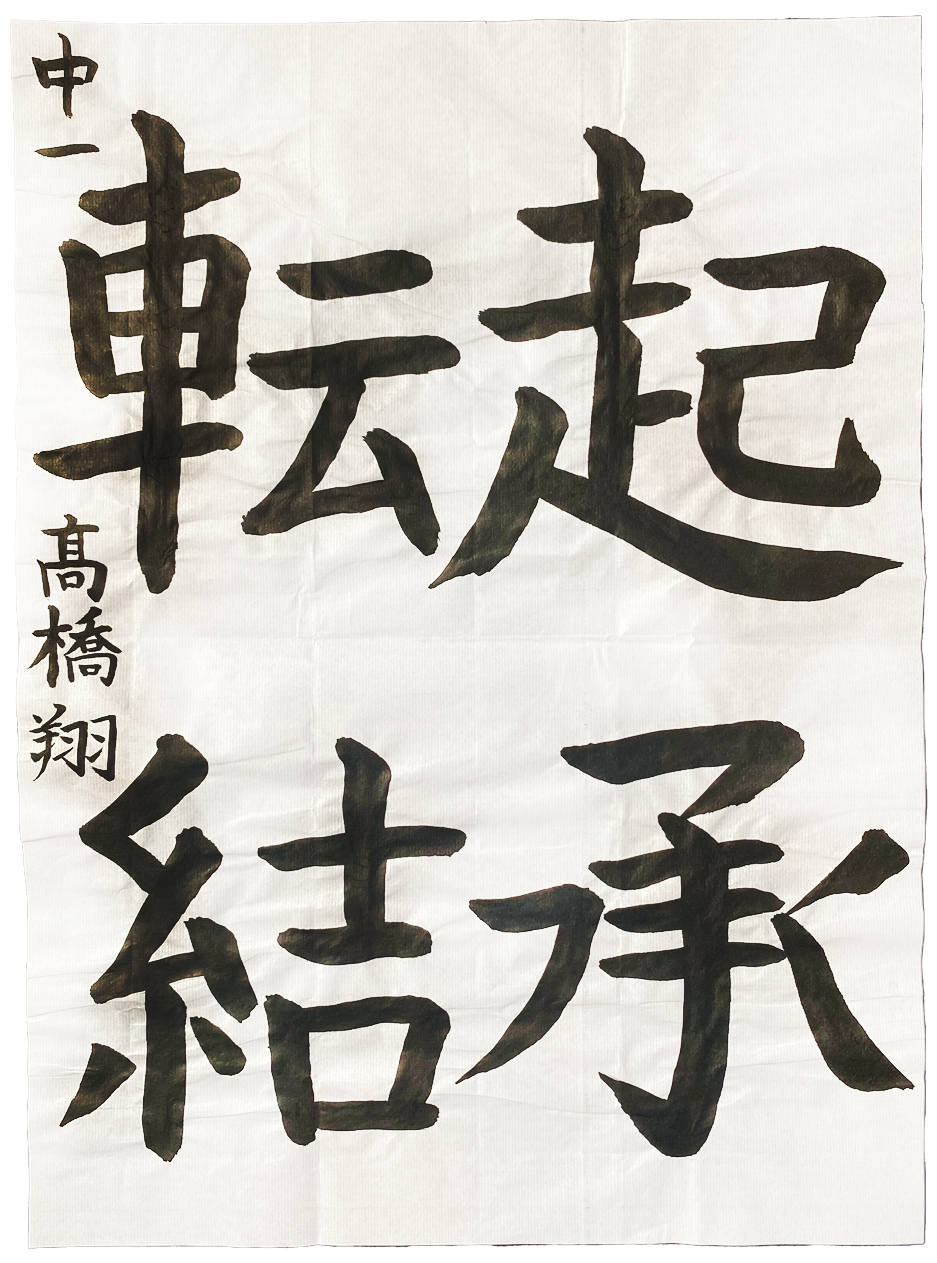 起承
転結
中一 髙橋翔